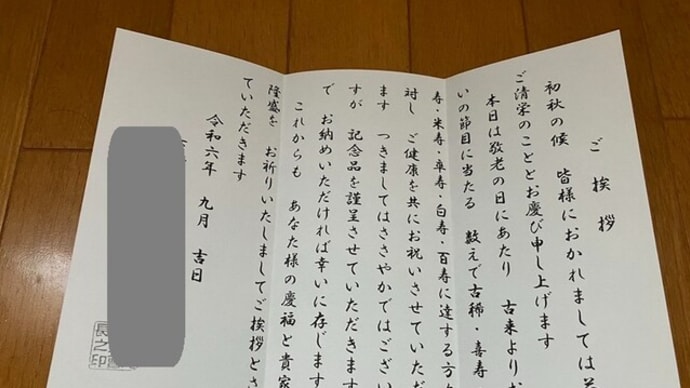 ご挨拶
初秋の候　皆様におかれましては
ご清栄のこととお慶び申し上げます
本日は敬老の日にあたり　古来よりお
いの節目に当たる　数えで古稀・喜寿
寿・米寿・卒寿・白寿・百寿に達する方
対し　ご健康を共にお祝いさせていただ
ます　つきましてはささやかではござい
すが　記念品を謹呈させていただきます
で　お納めいただければ幸いに存じます
これからも　あなた様の慶福と貴家
隆盛を　お祈りいたしましてご挨拶とさ
ていただきます
令和六年　九月　吉日
長之印